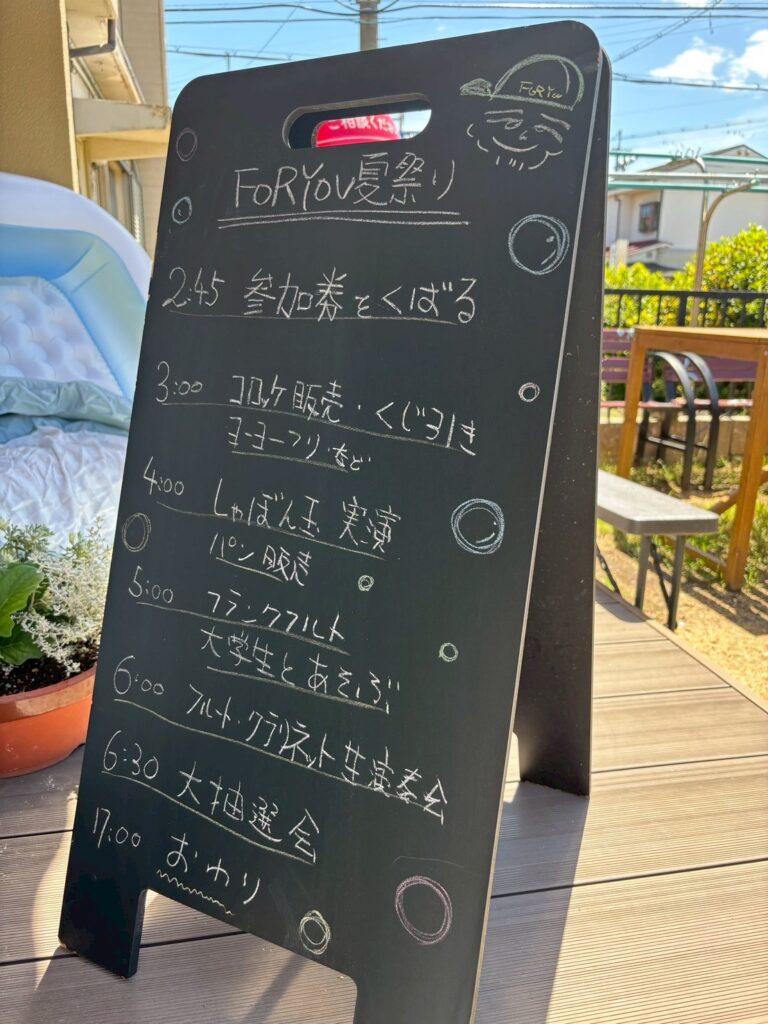 ご相談くださ
FORYOU
FORYOU夏祭り
2:45 参加券をくばる
3:00 コロッケ販売・くじ引き
ヨーヨーつり・など
4:00 しゃぼん玉 実演
パン販売
5:00 フランクフルト
大学生とあそぶ
6:00 フルート・クラリネット生演奏会
6:30 大抽選会
17:00 おわり